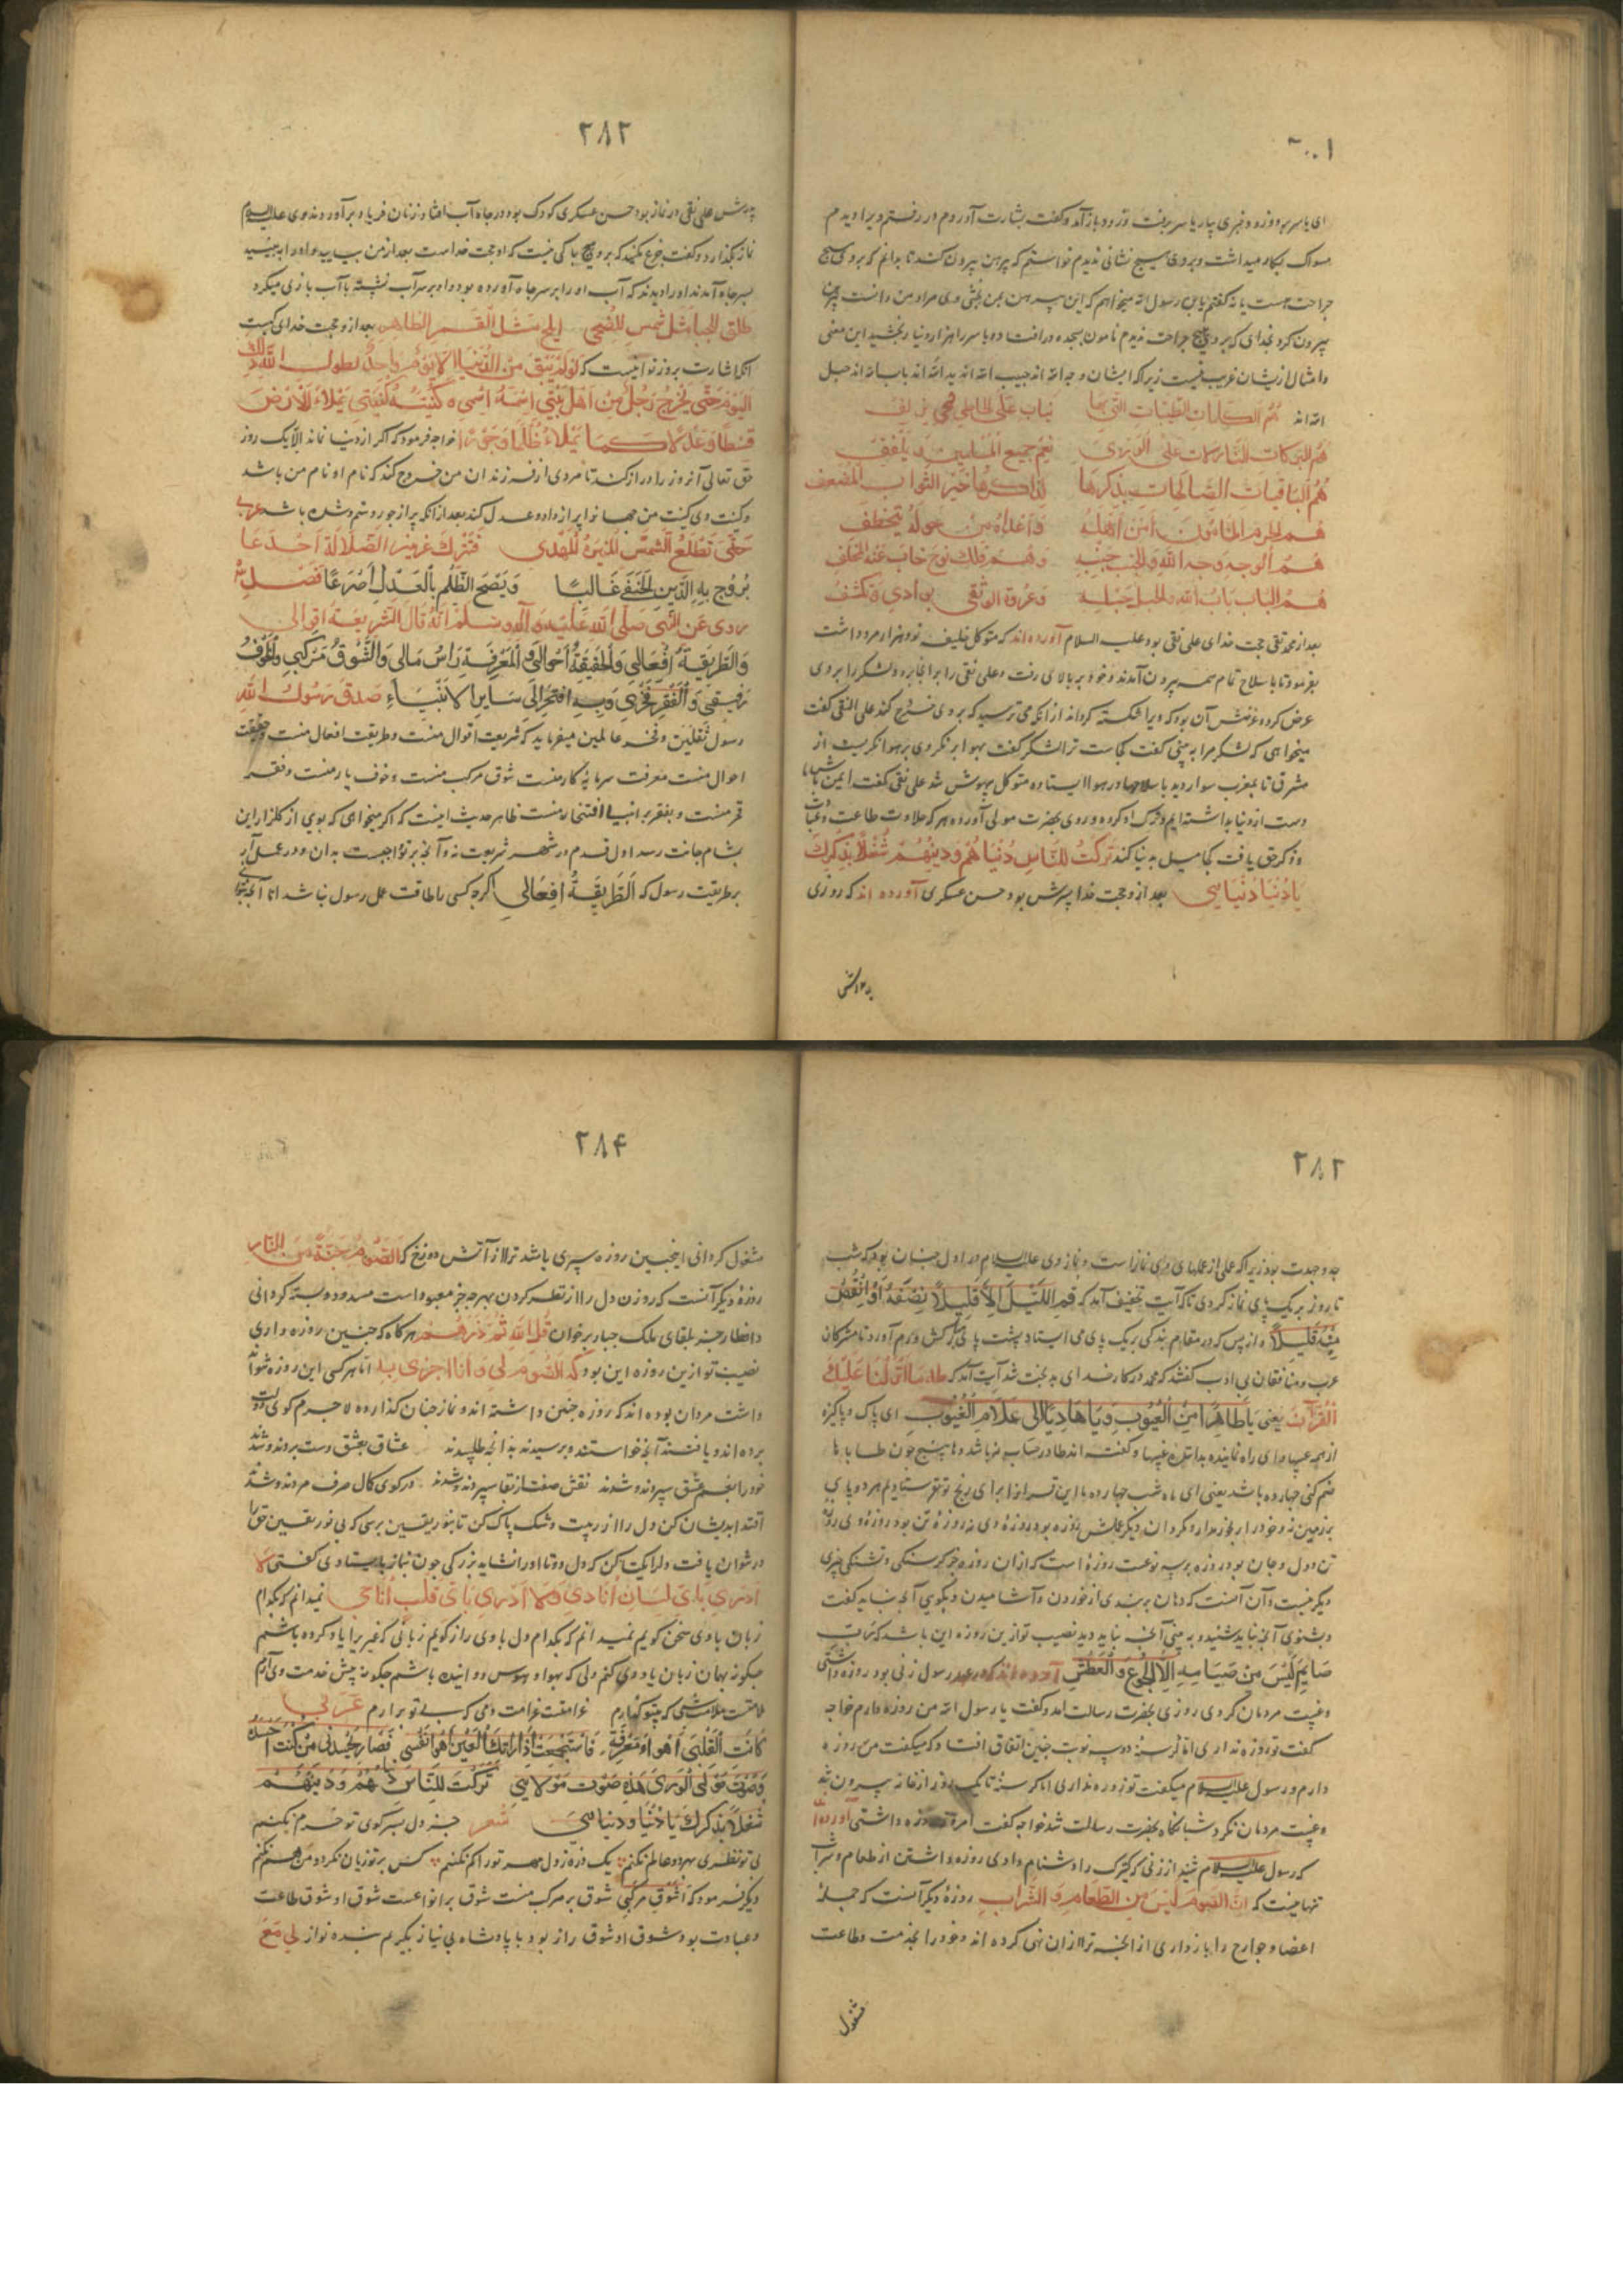 ۲۰۰۱
ای یاسر برو و زود خبری بیار یاسر برفت و زود باز آمد و گفت بشارت آوردم در رفتم ویرا دیدم
مسواک بکار میداشت و بر وی هیچ نشانی ندیدم خواستم که پیرهن بیرون کند تا بدانم که بر وی هیچ
جراحت هست یا نه گفتم یابن رسول الله میخواهم که این پیرهن بمن بخشی وی مراد من دانست پیرهن
بیرون کرد بخدای که بر وی هیچ جراحت ندیدم مامون بسجده در افتاد و یاسر را هزار دینار بخشید این معنی
و امثال از یشان غریب نیست زیرا که ایشان وجه الله اند جیب الله اند ید الله اند باب الله اند حبل
الله اند هُم الکلمات الطیبات التی بها یتاب علی الخاطی
هُم البرکات النازلات علی الوری
هُم الباقیات الصالحات بذکرها لذاکرها خیر الثواب المضعف
هم الحرم المأمون آمن اهله و اعداؤه من حوله یتخطف
هم الوجه وجه الله والجنب جنبه وهم فلک نوح خاب عنه المخلف
هم الباب باب الله والحبل حبله وعروة الوثقی
بعد از محمد تقی حجت خدای علی نقی بود علیه السلام آورده اند که متوکل خلیفه نود هزار مرد داشت
بفرمود تا با سلاح تمام همه بیرون آمدند و خود بر بالای رفت و علی نقی را بر آنجا برد و لشکر را بر وی
عرض کرد و غرضش آن بود که ویرا شکسته گرداند از آنکه می ترسید که بر وی خروج کند علی النقی گفت
میخواهی که لشکر مرا به بینی گفت کجاست ترا لشکر گفت بهوا بر نگر وی بر هوا نگریست از
مشرق تا بمغرب سوار دید با سلاحها در هوا ایستاده متوکل بیهوش شد علی نقی گفت ایمن باش ما
دست از دنیا بداشته ایم و ترک او کرده و روی بحضرت مولی آورده هر که حلاوت طاعت و عبادت
و ذکر حق یافت کجا میل به دنیا کند ترکت للناس دنیاهم و دینهم شغلا بذکرک
یا دنیا و دنیایی بعد از و حجت خدا پسرش بود حسن عسکری آورده اند که روزی
پدرش
۲۸۲
پدرش علی نقی در نماز بود حسن عسکری کودک بود در چاه آب افتاد زنان فریاد بر آوردند وی علیه السلام
نماز بگذارد و گفت جزع مکنید که بر وی هیچ باکی نیست که او حجت خداست بعد از من بیایید و او را به بینید
بسر چاه آمدند او را دیدند که آب او را بر سر چاه آورده بود و او بر سر آب نشسته با آب بازی میکرد
طلق المحیا مثل شمس الضحی ابلج مثل القمر الظاهر بعد از و حجت خدای کیست
آنکه اشارت بروز توانیست که لو لم یبق من الدنیا الا یوم واحد لطول الله ذلک
الیوم حتی یخرج رجل من اهل بیتی اسمه اسمی و کنیته کنیتی یملاء الارض
قسطا وعدلا کما یملاء ظلما وجورا خواجه فرمود که اگر از دنیا نماند الا یک روز
حق تعالی آن روز را دراز کند تا مردی از فرزندان من خروج کند که نام او نام من باشد
و کنیت وی کنیت من جهانرا پر از داد و عدل کند بعد از آنکه پر از جور و ستم شده باشد عربی
حتی تطلع الشمس المنیرة للهدی فتترک غرور الضلالة
بروج به الدین الحنفی غالبا ویضح الظلم بالعدل اضرعا فصل
روی عن النبی صلی الله علیه وآله وسلم انه قال الشریعة اقوالی
والطریقة افعالی والحقیقة احوالی والمعرفة راس مالی والشوق مرکبی والخوف
رفیقی والفقر فخری وبه افتخر علی سایر الانبیاء صدق رسول الله
رسول ثقلین و فخر عالمین میفرماید که شریعت اقوال منست و طریقت افعال منست و حقیقت
احوال منست معرفت سرمایه کار منست شوق مرکب منست و خوف یار منست و فقر
فخر منست و بفقر بر انبیا افتخار منست ظاهر حدیث اینست که اگر میخواهی که بوی از گلزار این
بمشام جانت رسد اول قدم در شهر شریعت نه و آنچه بر تو واجبست بدان و در عمل آر
بر طریقت رسول که الطریقة افعالی اگر چه کسی را طاقت عمل رسول نباشد اما آنچه
۲۸۳
جد و جهدت بود زیرا که علی از عملهای وی نماز است و نماز وی علیه السلام در اول چنان بود که شب
تا روز بر یک پای نماز کردی تا که آیت تخفیف آمد که قم اللیل الا قلیلا نصفه او انقص
منه قلیلا و از پس که در مقام بندگی بر یک پای می ایستاد پشت پای مبارکش ورم آورد تا مشرکان
عرب و منافقان بی ادب گفتند که محمد در کار خدای بد بخت شد آیت آمد که طه ما انزلنا علیک
القرآن یعنی یا طاهرا من العیوب و یا هادیا الی علام الغیوب ای پاک و پاکیزه
از همه عیبها و ای راه نماینده بدانای غیبها و گفته اند طا در حساب نه باشد و ها پنج چون طا با ها
ضم کنی چهارده باشد یعنی ای ماه شب چهارده ما این قرآن را برای رنج تو نفرستادیم هر دو پای
بر زمین نه و خود را رنجه مدار و دیگر عملش روزه بود روزه وی نه روزه تن بود روزه وی روزه
تن و دل و جان بود روزه بر سه نوعست روزه است که از ان روزه جز گرسنگی و تشنگی چیزی
دیگر نیست و آن آنست که دهان بر بندی از خوردن و آشامیدن و بگویی آنچه نباید گفت
و بشنوی آنچه نباید شنید و به بینی آنچه نباید دید نصیب تو ازین روزه این باشد که رب
صایم لیس من صیامه الا الجوع والعطش آورده اند که در عهد رسول زنی بود روزه داشتی
و غیبت مردمان کردی روزی بحضرت رسالت آمد و گفت یا رسول الله من روزه دارم خواجه
گفت تو روزه نداری اما گرسنه دو سه نوبت چنین اتفاق افتاد که میگفت من روزه
دارم و رسول علیه السلام میگفت تو روزه نداری اما گرسنه تا یک روز از خانه بیرون نشد
و غیبت مردمان نکرد شبانگاه بحضرت رسالت شد خواجه گفت امروز روزه داشتی آورده اند
که رسول علیه السلام شنید از زنی که کنیزک را دشنام دادی روزه داشتن از طعام و شراب
تنها نیست که ان الصوم لیس من الطعام و الشراب روزه دیگر آنست که جمله
اعضا و جوارح را باز داری از آنچه ترا از ان نهی کرده اند و خود را بخدمت و طاعت
مشغول
۲۸۴
مشغول گردانی اینچنین روزه سپری باشد ترا از آتش دوزخ که الصوم جنة من النار
روزه دیگر آنست که روزن دل را از نظر کردن بهر چه جز معبود است مسدود و بسته گردانی
و افطار جز بلقای ملک جبار بر خوان قل الله ثم ذرهم هر گاه که چنین روزه داری
نصیب تو ازین روزه این بود که الصوم لی و انا اجزی به اما هر کسی این روزه نتواند
داشت مردان بوده اند که روزه چنین داشته اند و نماز چنان گذارده لا جرم گوی دولت
برده اند و یافتند آنچه خواستند و برسیدند بدانچه طلبیدند عشاق بعشق دست بردند و شدند
خود را بغم عشق سپردند و شدند نقش صفت از نقا سپردند و شدند در کوی کمال صرف مردند و شدند
اقتدا بدیشان کن دل را از ریب و شک پاک کن تا بنور یقین برسی که بی نور یقین حق را
در نتوان یافت و دلرا یکتا کن که دل دوتا او را نشاید بزرگی چون بنماز بایستادی گفتی لا
ادری بای لسان انادی و لا ادری بای قلب اناجی نمیدانم که بکدام
زبان با وی سخن گویم نمیدانم که بکدام دل با وی راز گویم زبانی که غیر را یاد کرده باشم
چگونه بهمان زبان یاد وی کنم دلی که بهوا و هوس دوانیده باشم چگونه پیش خدمت وی آرم
ملامتست ملامت شبی که بیتو گذارم غرامتست غرامت دمی که بی تو بر آرم عربی
کانت لقلبی اهواء مفرقة فاستجمعت اذ راتک العین اهوائی فصار یحسدنی من کنت احسده
وصرت مولی الوری مذ صرت مولائی ترکت للناس دنیاهم و دینهم
شغلا بذکرک یا دنیا و دنیایی شعر جز دل بسر کوی تو خرم نکنم
بی تو نظری بهر دو عالم نکنم یک ذره ز دل مهر تو را کم نکنم
دیگر فرمود که الشوق مرکبی شوق بر مرکب منست شوق بر انواعست شوق او شوق طاعت
و عبادت بود و شوق او شوق راز بود با پادشاه بی نیاز بکریم بنده نواز لی مع